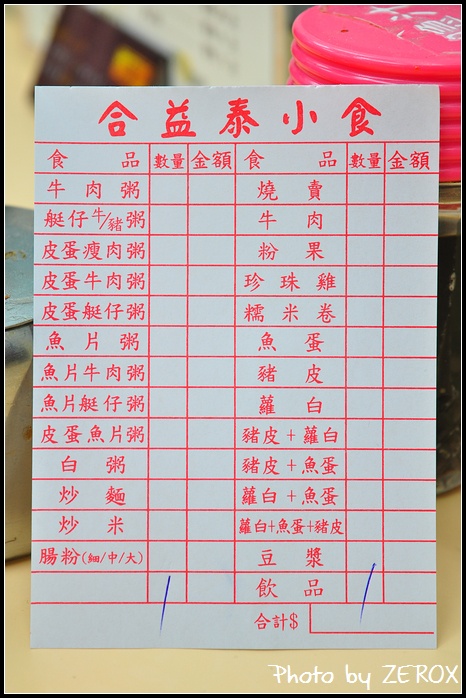 合益泰小食
食品 數量 金額 食品 數量 金額
牛肉粥 燒賣
艇仔牛/豬粥 牛肉
皮蛋瘦肉粥 粉果
皮蛋牛肉粥 珍珠雞
皮蛋艇仔粥 糯米卷
魚片粥 魚蛋
魚片牛肉粥 豬皮
魚片艇仔粥 蘿白
皮蛋魚片粥 豬皮+蘿白
白粥 豬皮+魚蛋
炒麵 蘿白+魚蛋
炒米 蘿白+魚蛋+豬皮
腸粉(細/中/大) 豆漿
飲品
合計$
Photo by ZEROX